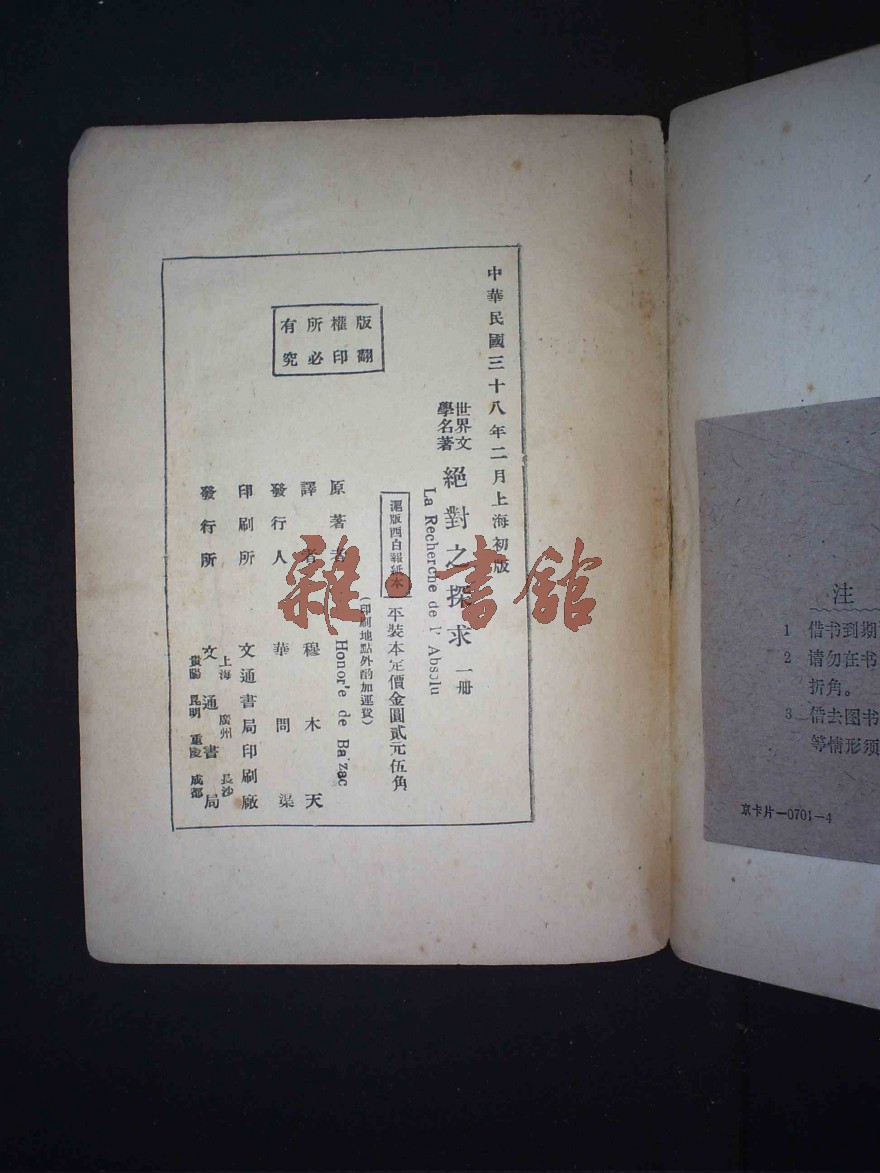 中華民國三十八年二月上海初版
世界文學名著
絕對之探求 一冊
La Recherche de l' Absolu
滬版西白報紙本
平裝本定價金圓貳元伍角
(印刷地點外酌加運費)
原著者 Honor'e de Ba'zac
譯者 穆木天
發行人 華問渠
印刷所 文通書局印刷廠
發行所 文通書局
上海 廣州 長沙
貴陽 昆明 重慶 成都
版權所有
翻印必究
雜·書館
注
1 借书到期
2 请勿在书
折角。
3 借去图书
等情形须
京卡片—0701—4